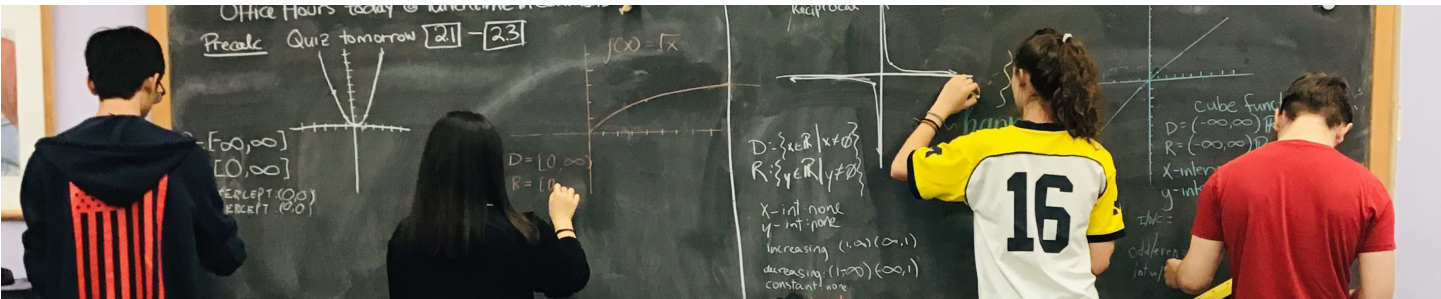 Office Hours today @ lunchtime
Precalc Quiz tomorrow 2.1 - 2.3
[-∞,∞]
[0,∞]
(0,0)
(0,0)
f(x) = √x
D = [0, ∞)
R = [0
Reciprocal
D:{x∈ℝ|x≠0}
R:{y∈ℝ|y≠0}
x-int: none
y-int: none
increasing (1,∞)(∞,1)
decreasing: (1,-∞)(-∞,1)
constant: none
16
cube func
D=(-∞,∞) ℝ
R=(-∞,∞) ℝ
x-inter
y-int
odd/even